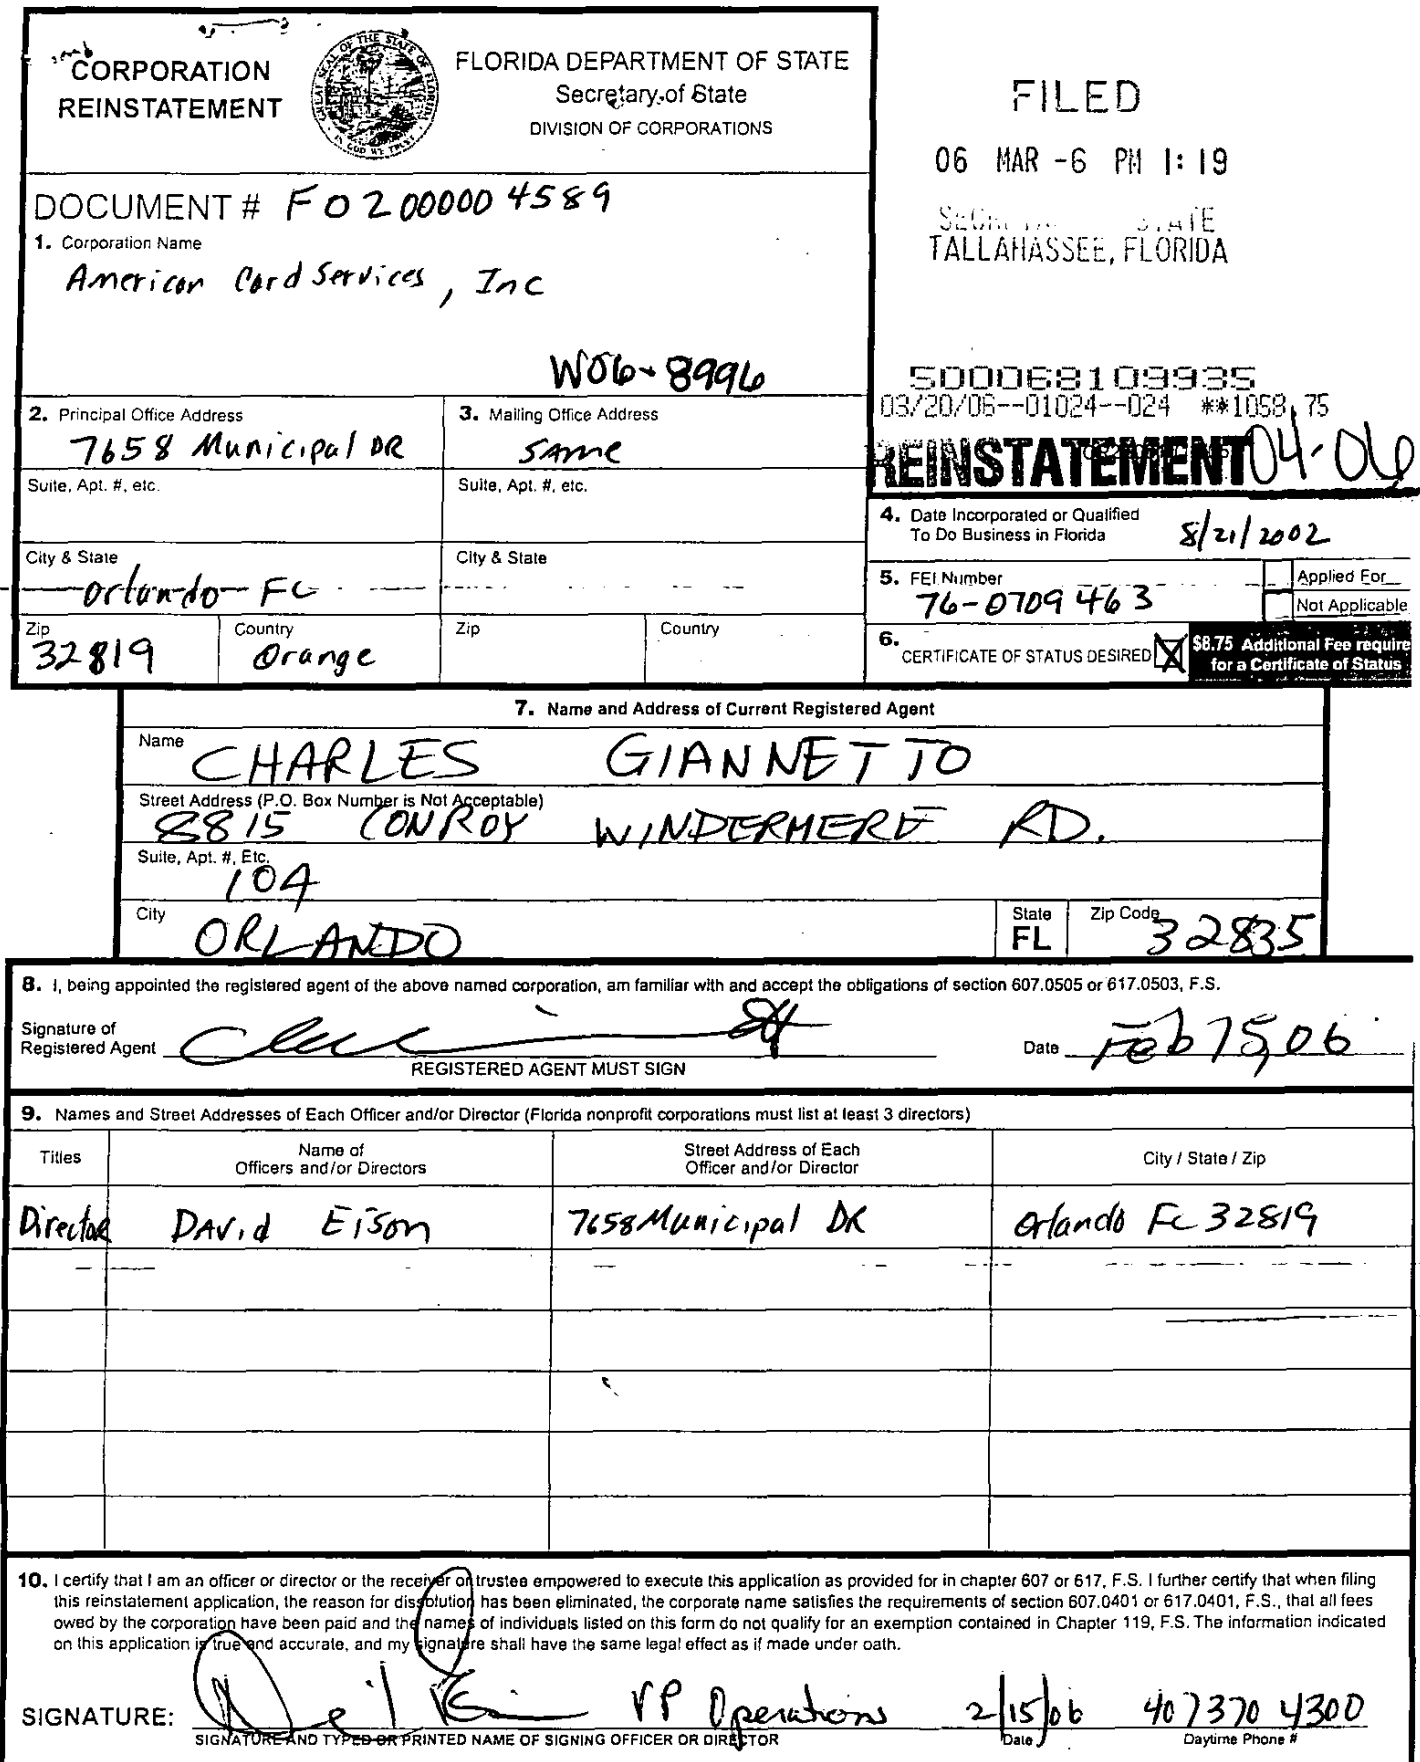 CORPORATION
REINSTATEMENT
FLORIDA DEPARTMENT OF STATE
Secretary of State
DIVISION OF CORPORATIONS
FILED
06 MAR -6 PM 1:19
TALLAHASSEE, FLORIDA
DOCUMENT # F02000004589
1. Corporation Name
American Card Services, Inc
W06-8996
500068109935
03/20/06--01024--024 **1058.75
REINSTATEMENT 04-06
2. Principal Office Address
7658 Municipal DR
3. Mailing Office Address
SAme
Suite, Apt. #, etc.
Suite, Apt. #, etc.
4. Date Incorporated or Qualified
To Do Business in Florida
8/21/2002
City & State
Orlando FL
City & State
5. FEI Number
76-0709463
Applied For
Not Applicable
Zip
32819
Country
Orange
Zip
Country
6. CERTIFICATE OF STATUS DESIRED X
$8.75 Additional Fee require
for a Certificate of Status
7. Name and Address of Current Registered Agent
Name
CHARLES GIANNETTO
Street Address (P.O. Box Number is Not Acceptable)
8815 CONROY WINDERMERE RD.
Suite, Apt. #, Etc.
104
City
ORLANDO
State
FL
Zip Code
32835
8. I, being appointed the registered agent of the above named corporation, am familiar with and accept the obligations of section 607.0505 or 617.0503, F.S.
Signature of
Registered Agent
REGISTERED AGENT MUST SIGN
Date Feb 15, 06
9. Names and Street Addresses of Each Officer and/or Director (Florida nonprofit corporations must list at least 3 directors)
Titles
Name of
Officers and/or Directors
Street Address of Each
Officer and/or Director
City / State / Zip
Director David Eison 7658 Municipal DR Orlando FL 32819
10. I certify that I am an officer or director or the receiver or trustee empowered to execute this application as provided for in chapter 607 or 617, F.S. I further certify that when filing
this reinstatement application, the reason for dissolution has been eliminated, the corporate name satisfies the requirements of section 607.0401 or 617.0401, F.S., that all fees
owed by the corporation have been paid and the names of individuals listed on this form do not qualify for an exemption contained in Chapter 119, F.S. The information indicated
on this application is true and accurate, and my signature shall have the same legal effect as if made under oath.
SIGNATURE: VP Operations 2/15/06 407 370 4300
SIGNATURE AND TYPED OR PRINTED NAME OF SIGNING OFFICER OR DIRECTOR
Date
Daytime Phone #